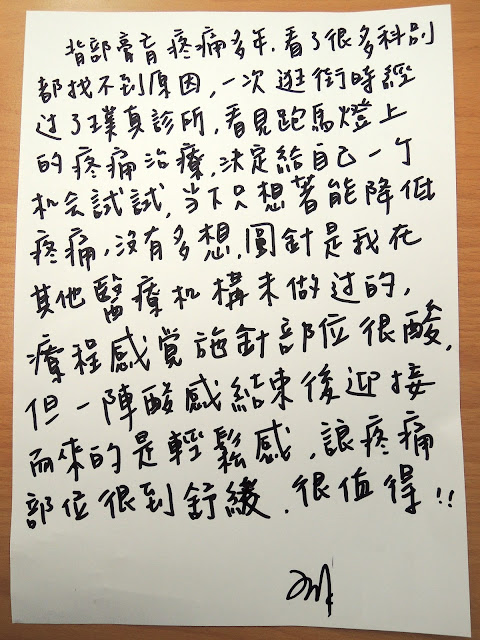 背部膏肓疼痛多年,看了很多科別
都找不到原因,一次逛街時經
过了璞真診所,看見跑馬燈上
的疼痛治療,決定給自己一个
机会試試,当下只想著能降低
疼痛,沒有多想,圓針是我在
其他醫療机構未做过的,
療程感覚施針部位很酸,
但一陣酸感結束後迎接
而來的是輕鬆感,讓疼痛
部位很到舒緩.很值得!!